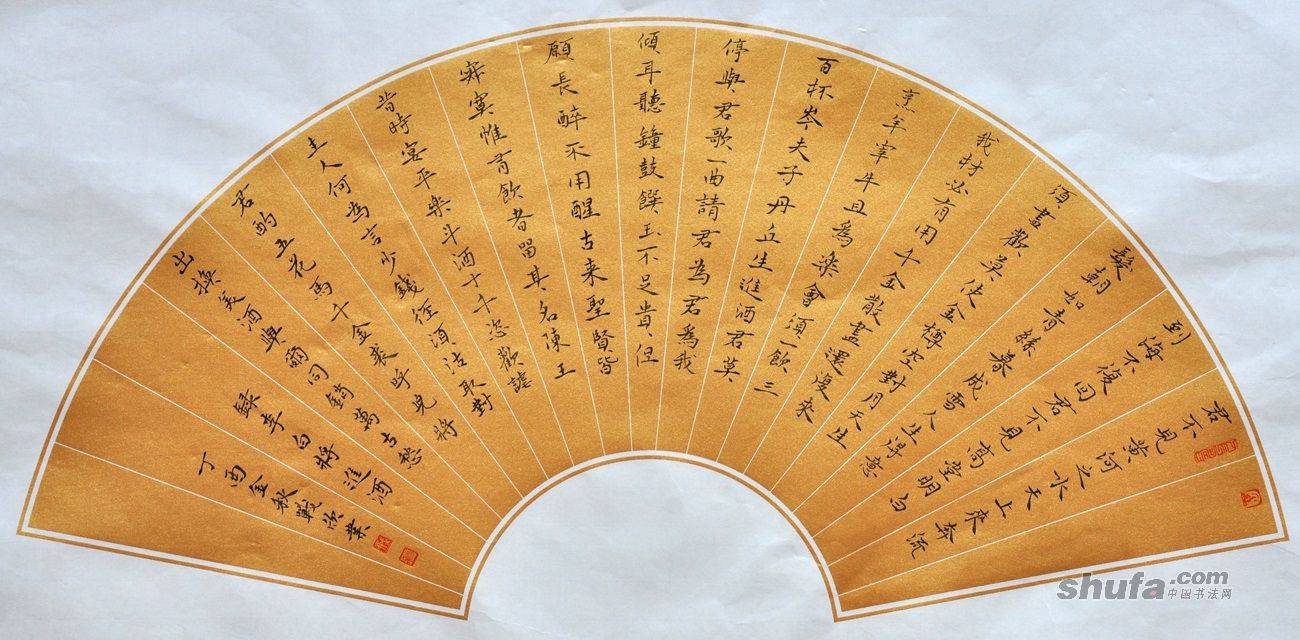 君不見黃河之水天上來奔流
到海不復回君不見高堂明白
髮朝如青絲暮成雪人生得意
須盡歡莫使金樽空對月天生
我材必有用千金散盡還復來
烹羊宰牛且為樂會須一飲三
百杯岑夫子丹丘生進酒君莫
停與君歌一曲請君為君為我
傾耳聽鐘鼓饌玉不足貴但
願長醉不用醒古來聖賢皆
寂寞惟有飲者留其名陳王
昔時宴平樂斗酒十千恣歡謔
主人何為言少錢徑須沽取對
君酌五花馬千金裘呼兒將
出換美酒與爾同銷萬古愁
録李白將進酒
丁酉金秋
shufa.com
中国书法网